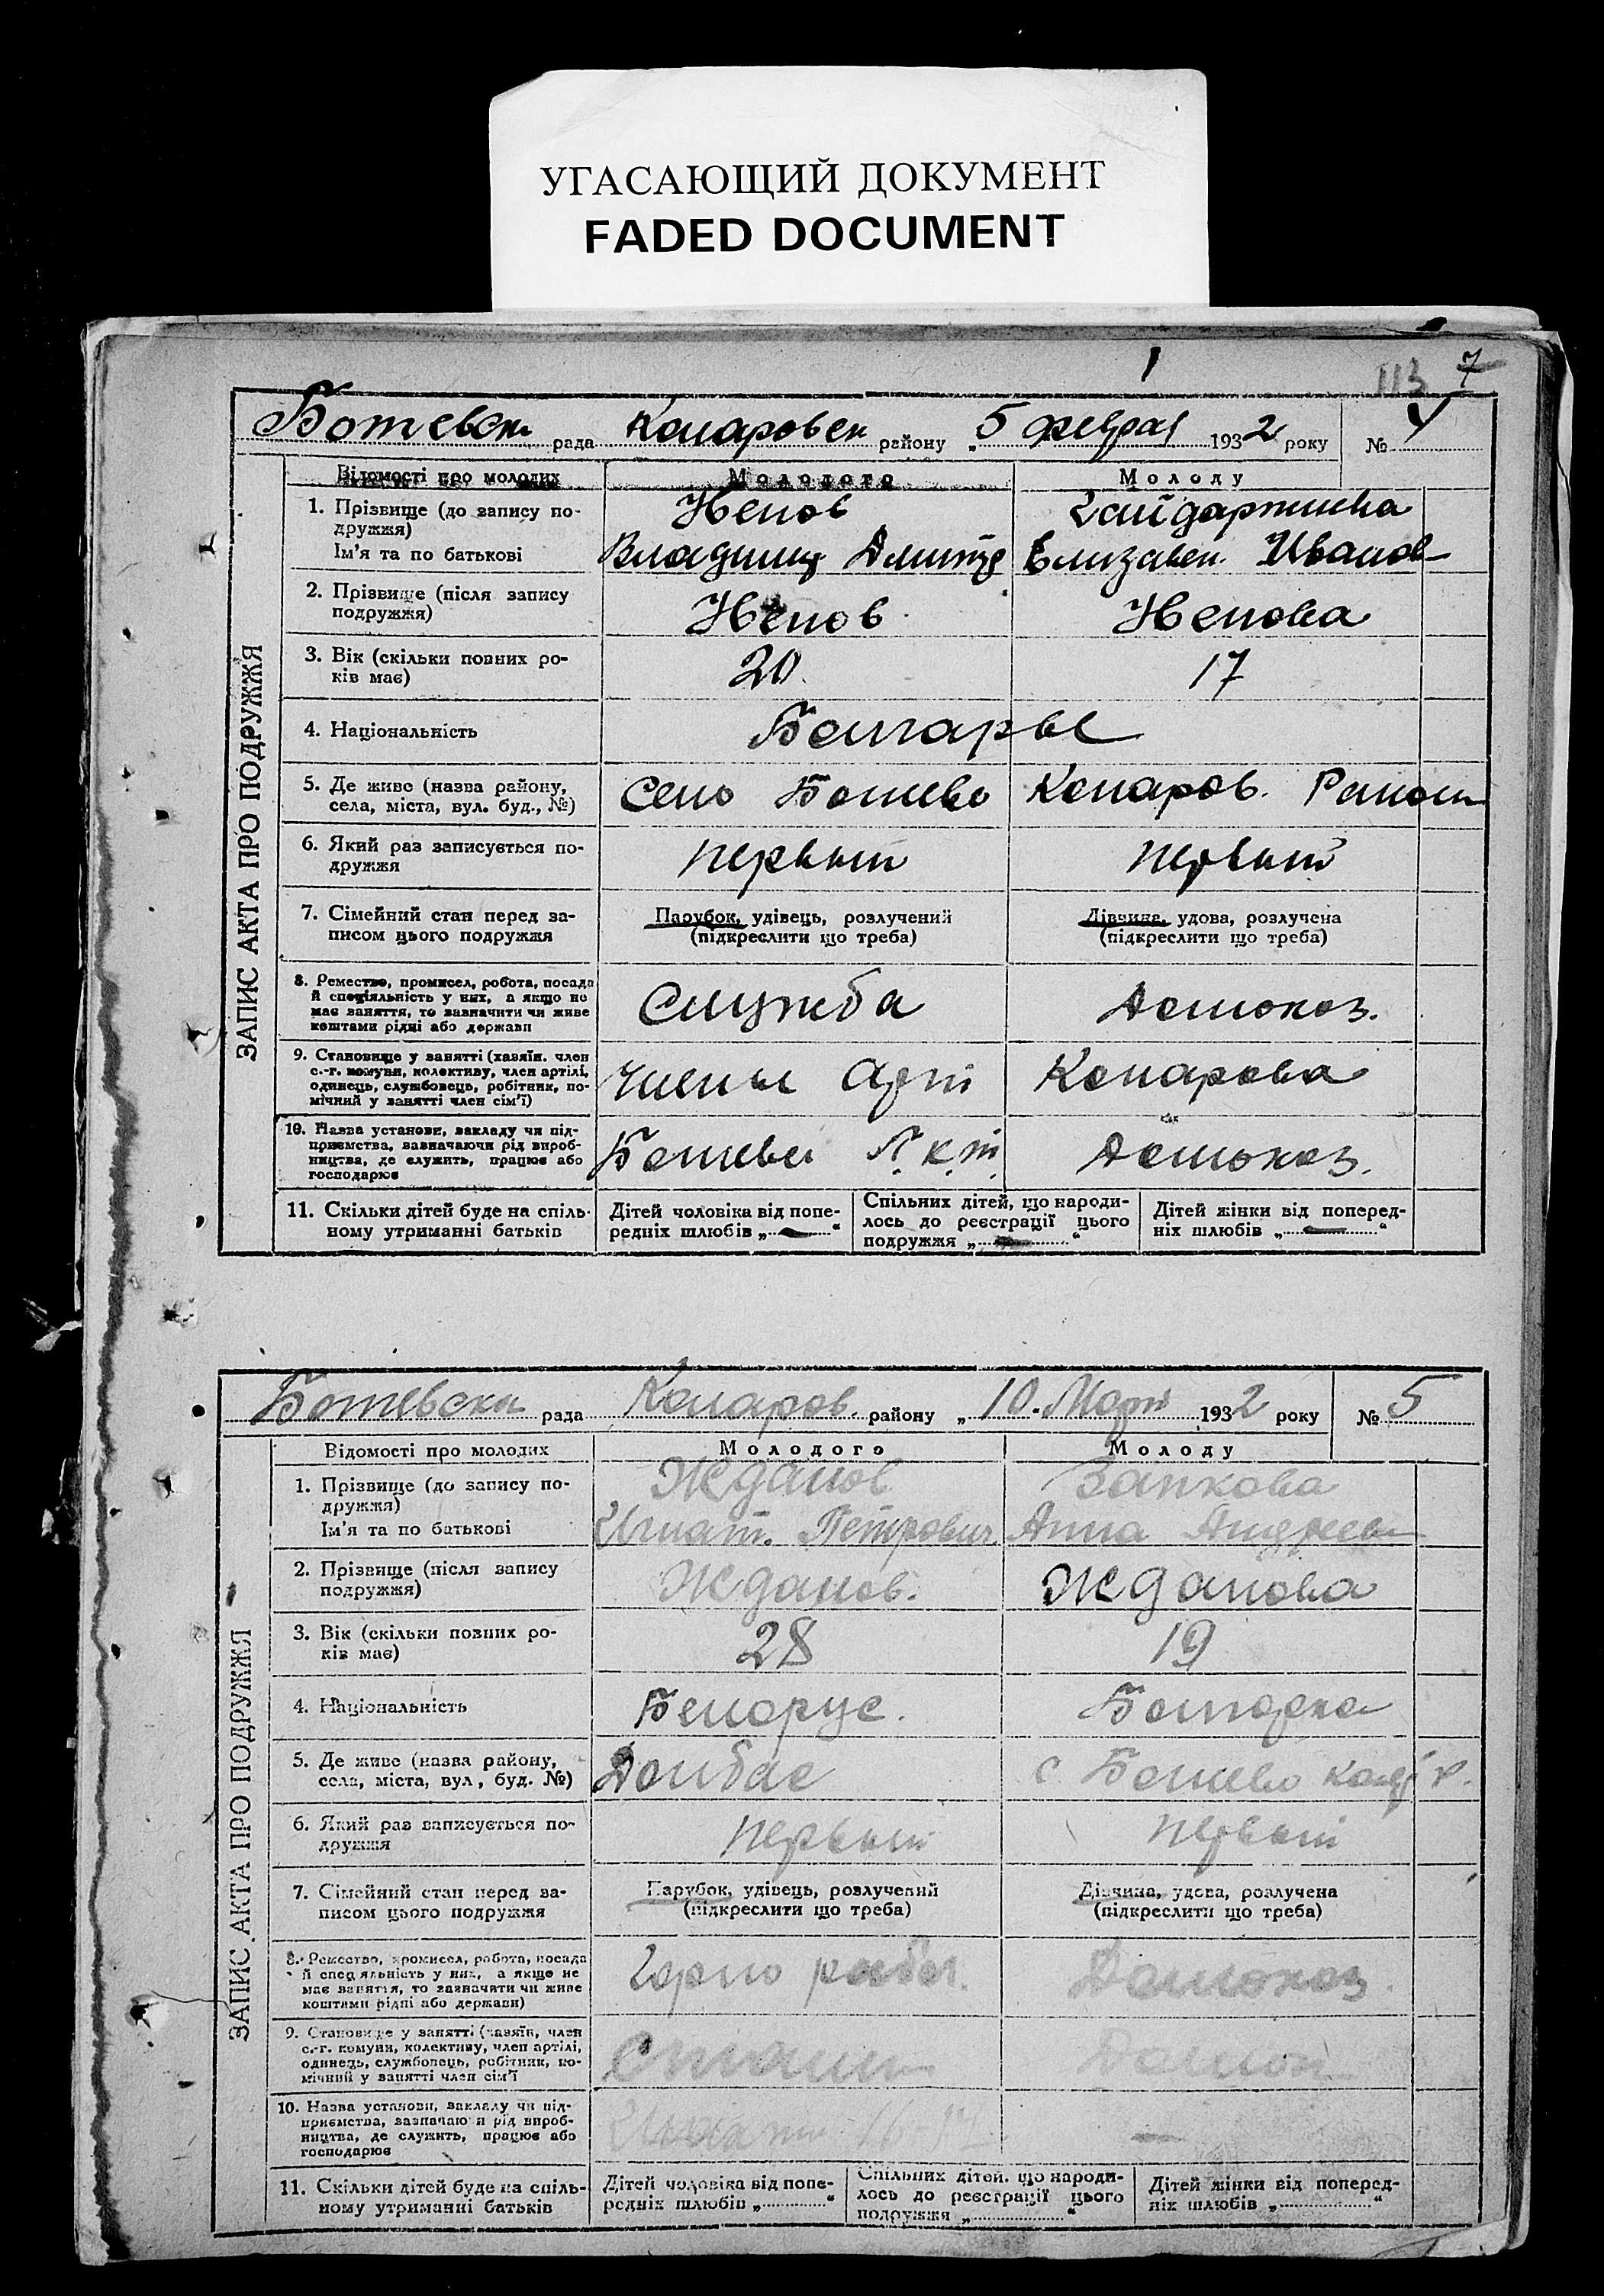 УГАСАЮЩИЙ ДОКУМЕНТ
FADED DOCUMENT
113 7
Ботевски рада Коларовск району „5 феврал 1932 року № 4
Відомості про молодих Молодого Молоду
1. Прізвище (до запису по-
дружжя)
Ненов Гайдаржиева
Ім'я та по батькові Владимир Дмитр Елизавет. Иванов
2. Прізвище (після запису
подружжя)
Ненов Ненова
3. Вік (скільки повних ро-
ків має)
20. 17
4. Національність Болгары
5. Де живе (назва району,
села, міста, вул. буд., №)
Село Ботево Коларов. Район
6. Який раз записується по-
дружжя
первый первый
7. Сімейний стан перед за-
писом цього подружжя
Парубок, удівець, розлучений
(підкреслити що треба)
Дівчина, удова, розлучена
(підкреслити що треба)
8. Ремество, промисел, робота, посада
й спеціяльність у них, а якщо не
має заняття, то зазначити чи живе
коштами рідні або держави
Служба Домохоз.
9. Становище у занятті (хазяїн. член
с.-г. комуни, колективу, член артілі,
одинець, службовець, робітник, по-
мічний у занятті член сім'ї)
Члены Арт Коларова
10. Назва установи, закладу чи під-
приємства, зазначаючи рід вироб-
ництва, де служить, працює або
господарює
Домохоз.
11. Скільки дітей буде на спіль-
ному утриманні батьків
Дітей чоловіка від попе-
редніх шлюбів „ — “
Спільних дітей, що народи-
лось до реєстрації цього
подружжя „ — “
Дітей жінки від поперед-
ніх шлюбів „ — “
ЗАПИС АКТА ПРО ПОДРУЖЖЯ
Ботевски рада Коларов. району „10. Март 1932 року № 5
Відомості про молодих Молодого Молоду
1. Прізвище (до запису по-
дружжя)
Жданов Запкова
Ім'я та по батькові Игнат. Петрович Анна Андреевн
2. Прізвище (після запису
подружжя)
Жданов. Жданова
3. Вік (скільки повних ро-
ків має)
28 19
4. Національність Белорус. Болгарка
5. Де живе (назва району,
села, міста, вул, буд. №)
Донбас с Ботево р.
6. Який раз записується по-
дружжя
первый первый
7. Сімейний стан перед за-
писом цього подружжя
Парубок, удівець, розлучений
(підкреслити що треба)
Дівчина, удова, розлучена
(підкреслити що треба)
8. Ремество, промисел, робота, посада
й спеціяльність у них, а якщо не
має заняття, то зазначити чи живе
коштами рідні або держави)
Горно рабоч. Домохоз.
9. Становище у занятті (хазяїн, член
с.-г. комуни, колективу, член артілі,
одинець, службовець, робітник, по-
мічний у занятті член сім'ї
10. Назва установи, закладу чи під-
приємства, зазначаючи рід вироб-
ництва, де служить, працює або
господарює
—
11. Скільки дітей буде на спіль-
ному утриманні батьків
Дітей чоловіка від попе-
редніх шлюбів „ “
Спільних дітей, що народи-
лось до реєстрації цього
подружжя „ “
Дітей жінки від поперед-
ніх шлюбів „ “
ЗАПИС АКТА ПРО ПОДРУЖЖЯ